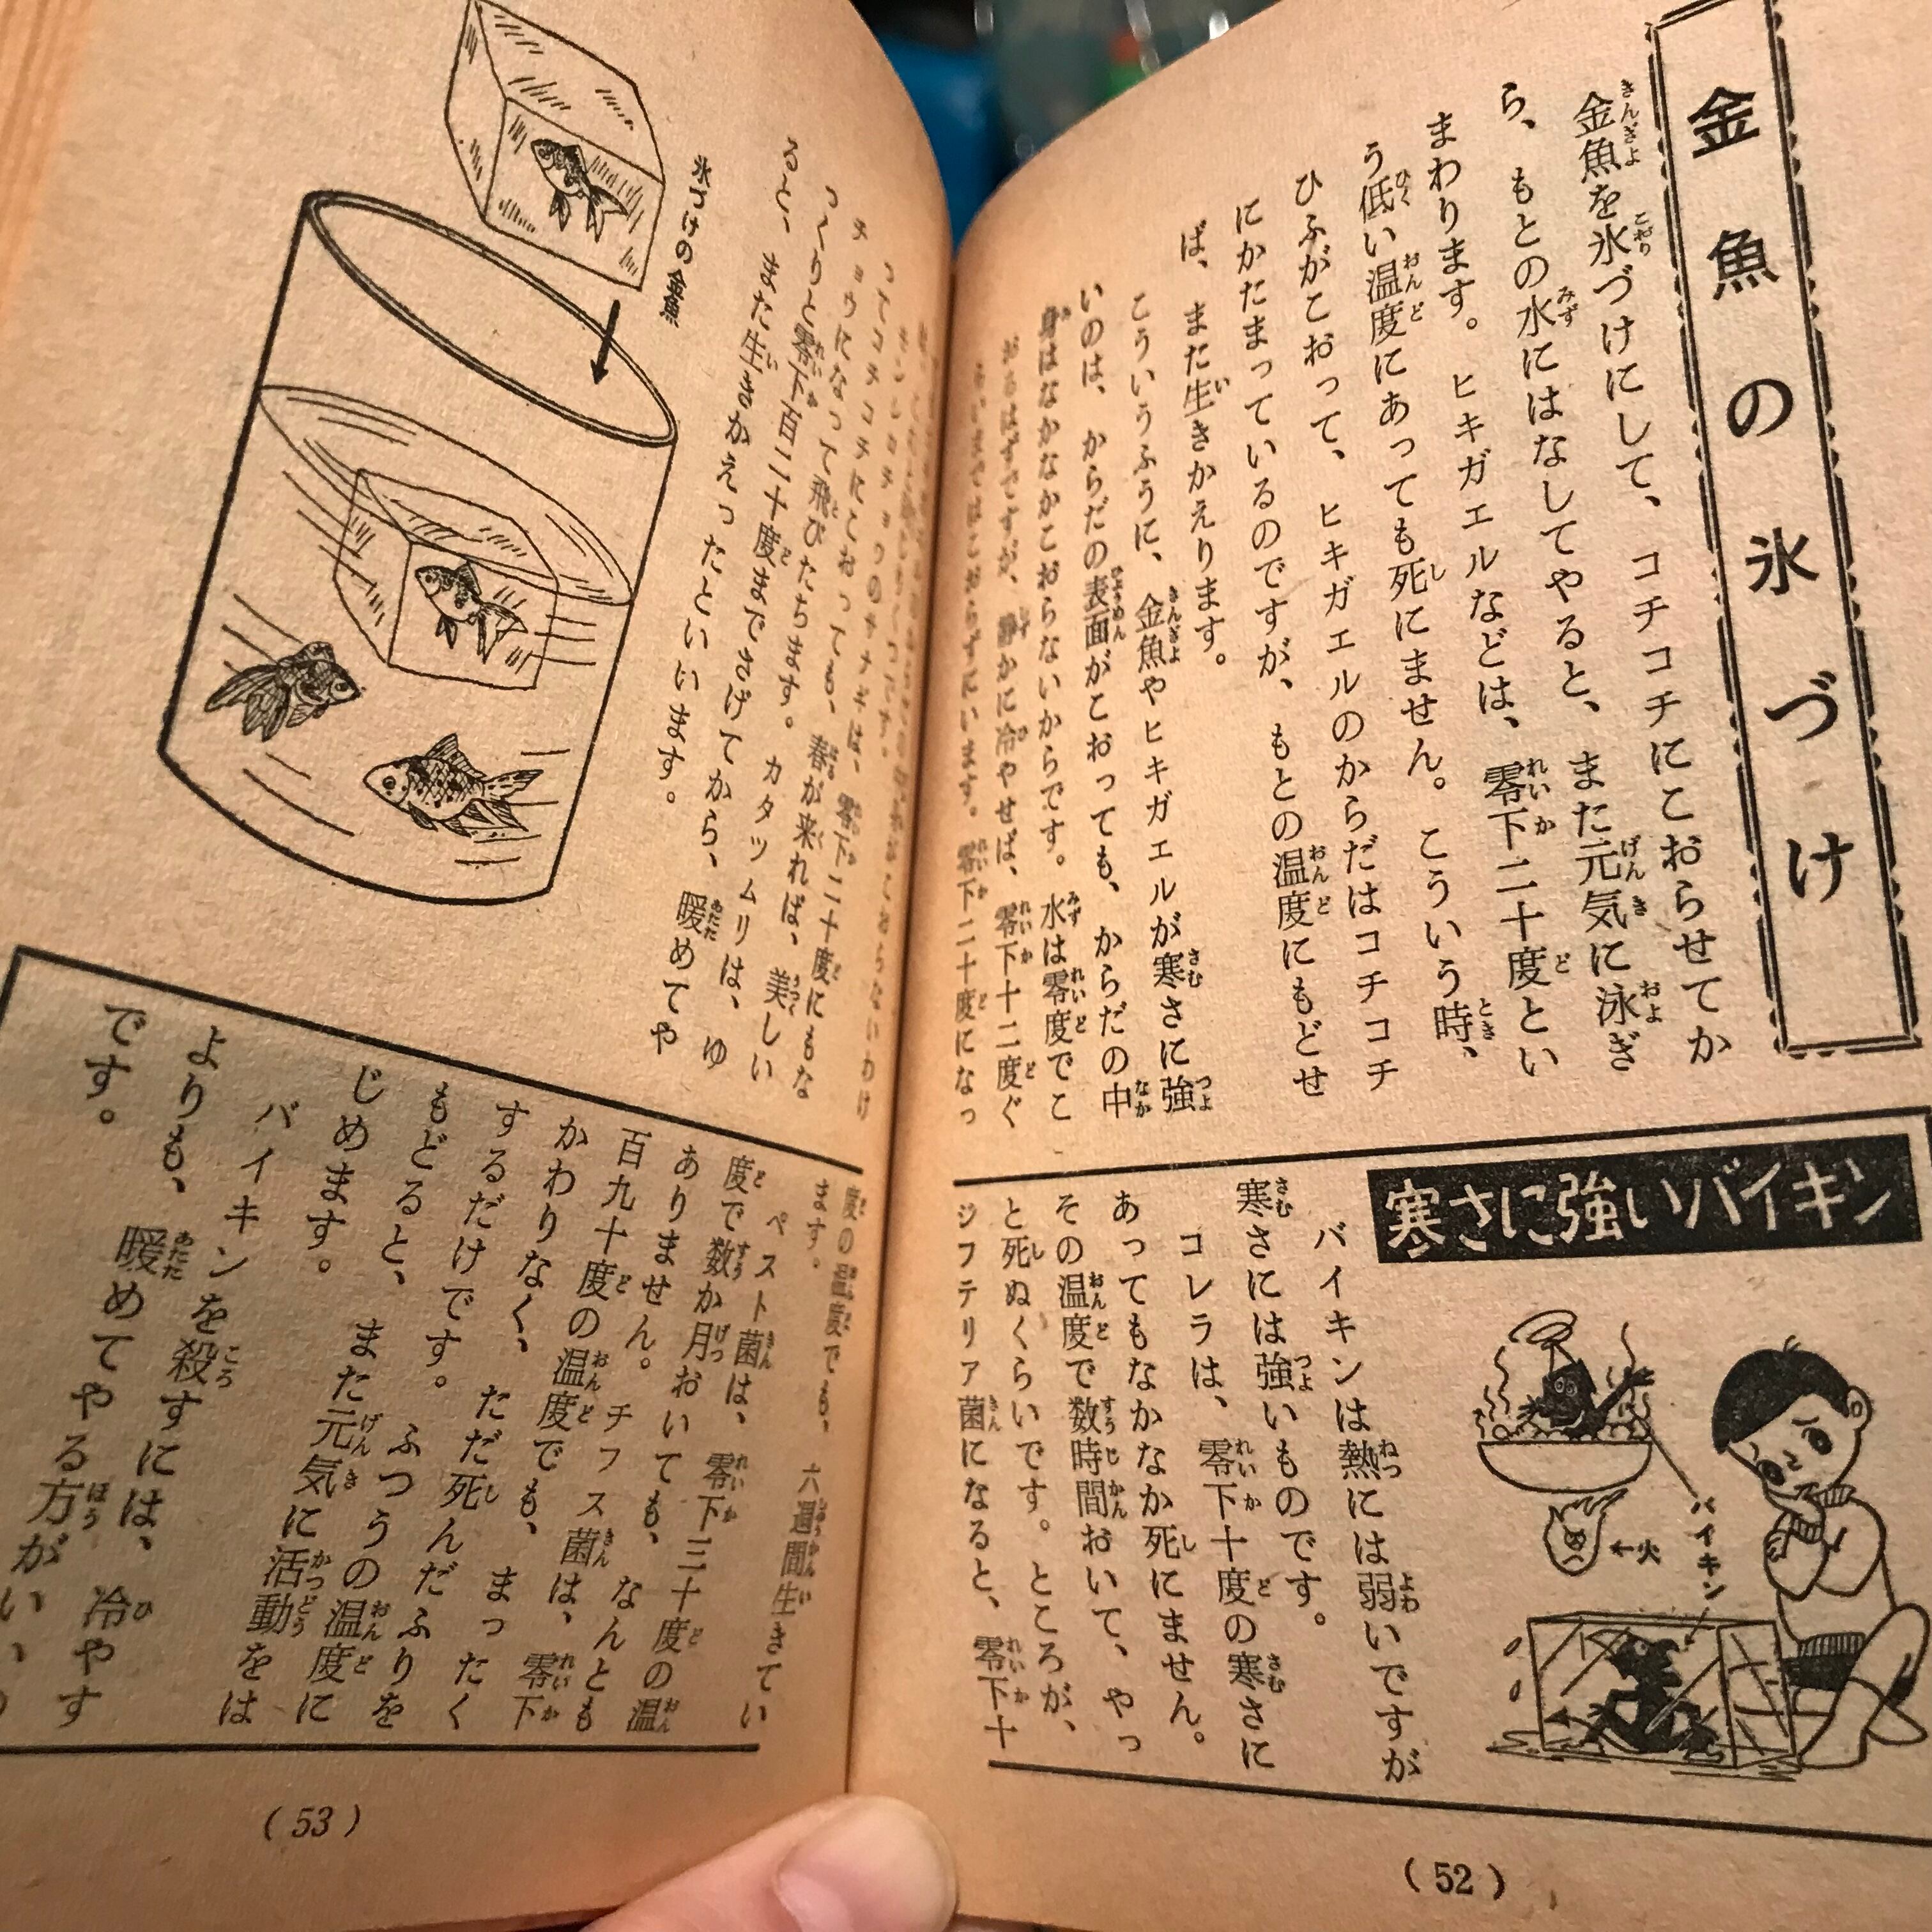 金魚の氷づけ
金魚を氷づけにして、コチコチにこおらせてか
ら、もとの水にはなしてやると、また元気に泳ぎ
まわります。ヒキガエルなどは、零下二十度とい
う低い温度にあっても死にません。こういう時、
ひふがこおって、ヒキガエルのからだはコチコチ
にかたまっているのですが、もとの温度にもどせ
ば、また生きかえります。
こういうふうに、金魚やヒキガエルが寒さに強
いのは、からだの表面がこおっても、からだの中
身はなかなかこおらないからです。水は零度でこ
おるはずですが、静かに冷やせば、零下十二度ぐ
零下二十度になっ
ってコチコチにこおっても、春が来れば、美しい
チョウになって飛びたちます。カタツムリは、ゆ
っくりと零下百二十度までさげてから、暖めてや
ると、また生きかえったといいます。
氷づけの金魚
寒さに強いバイキン
バイキンは熱には弱いですが
寒さには強いものです。
コレラは、零下十度の寒さに
あってもなかなか死にません。
その温度で数時間おいて、やっ
と死ぬくらいです。ところが、
ジフテリア菌になると、零下十
バイキン
←火
バイキン
度の温度でも、六週間生きてい
ます。
ペスト菌は、零下三十度の温
度で数か月おいても、なんとも
ありません。チフス菌は、零下
百九十度の温度でも、まったく
かわりなく、ただ死んだふりを
するだけです。ふつうの温度に
もどると、また元気に活動をは
じめます。
バイキンを殺すには、冷やす
よりも、暖めてやる方がいい
です。
(52)
(53)